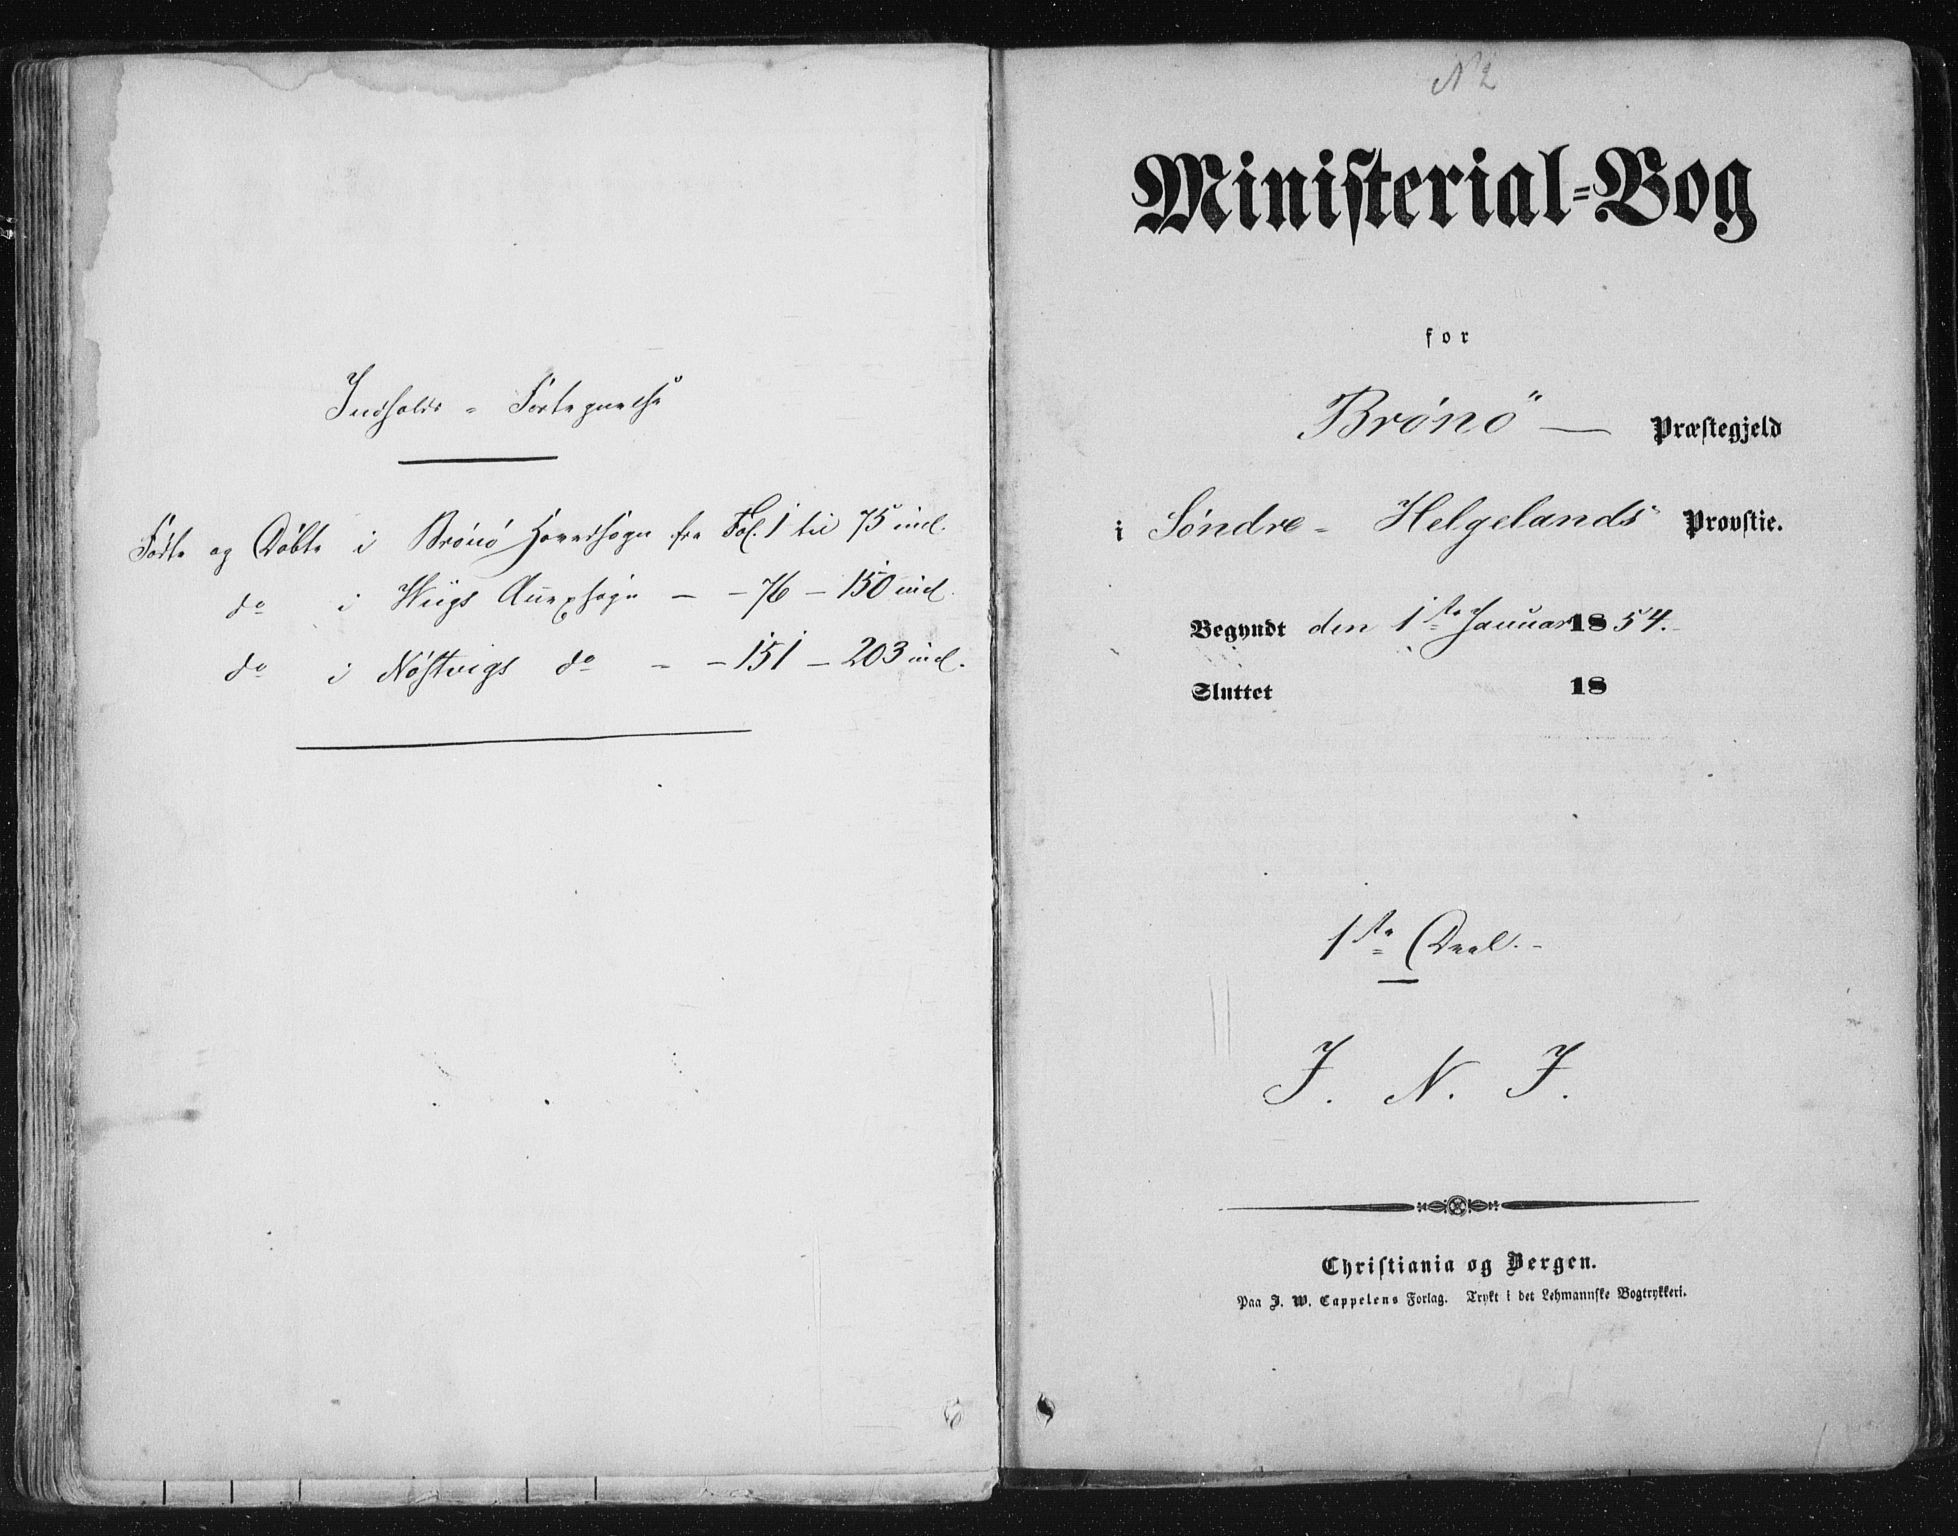 Indholds - Fortegnelse
Fødte og Døbte i Brønø Hovedsogn fra Fol. 1 til 75 incl.
do i Wiigs Annexsogn - - 76 - 150 incl.
do i Nøstvigs do - - 151 - 203 incl.
N 2
Ministerial-Bog
for
Brønö — Præstegjeld
i Söndre - Helgelands Provstie.
Begyndt den 1ste Januar 1854.
Sluttet 18
1ste Deel.-
J. N. J.
Christiania og Bergen.
Paa J. W. Cappelens Forlag. Trykt i det Lehmannske Bogtrykkeri.